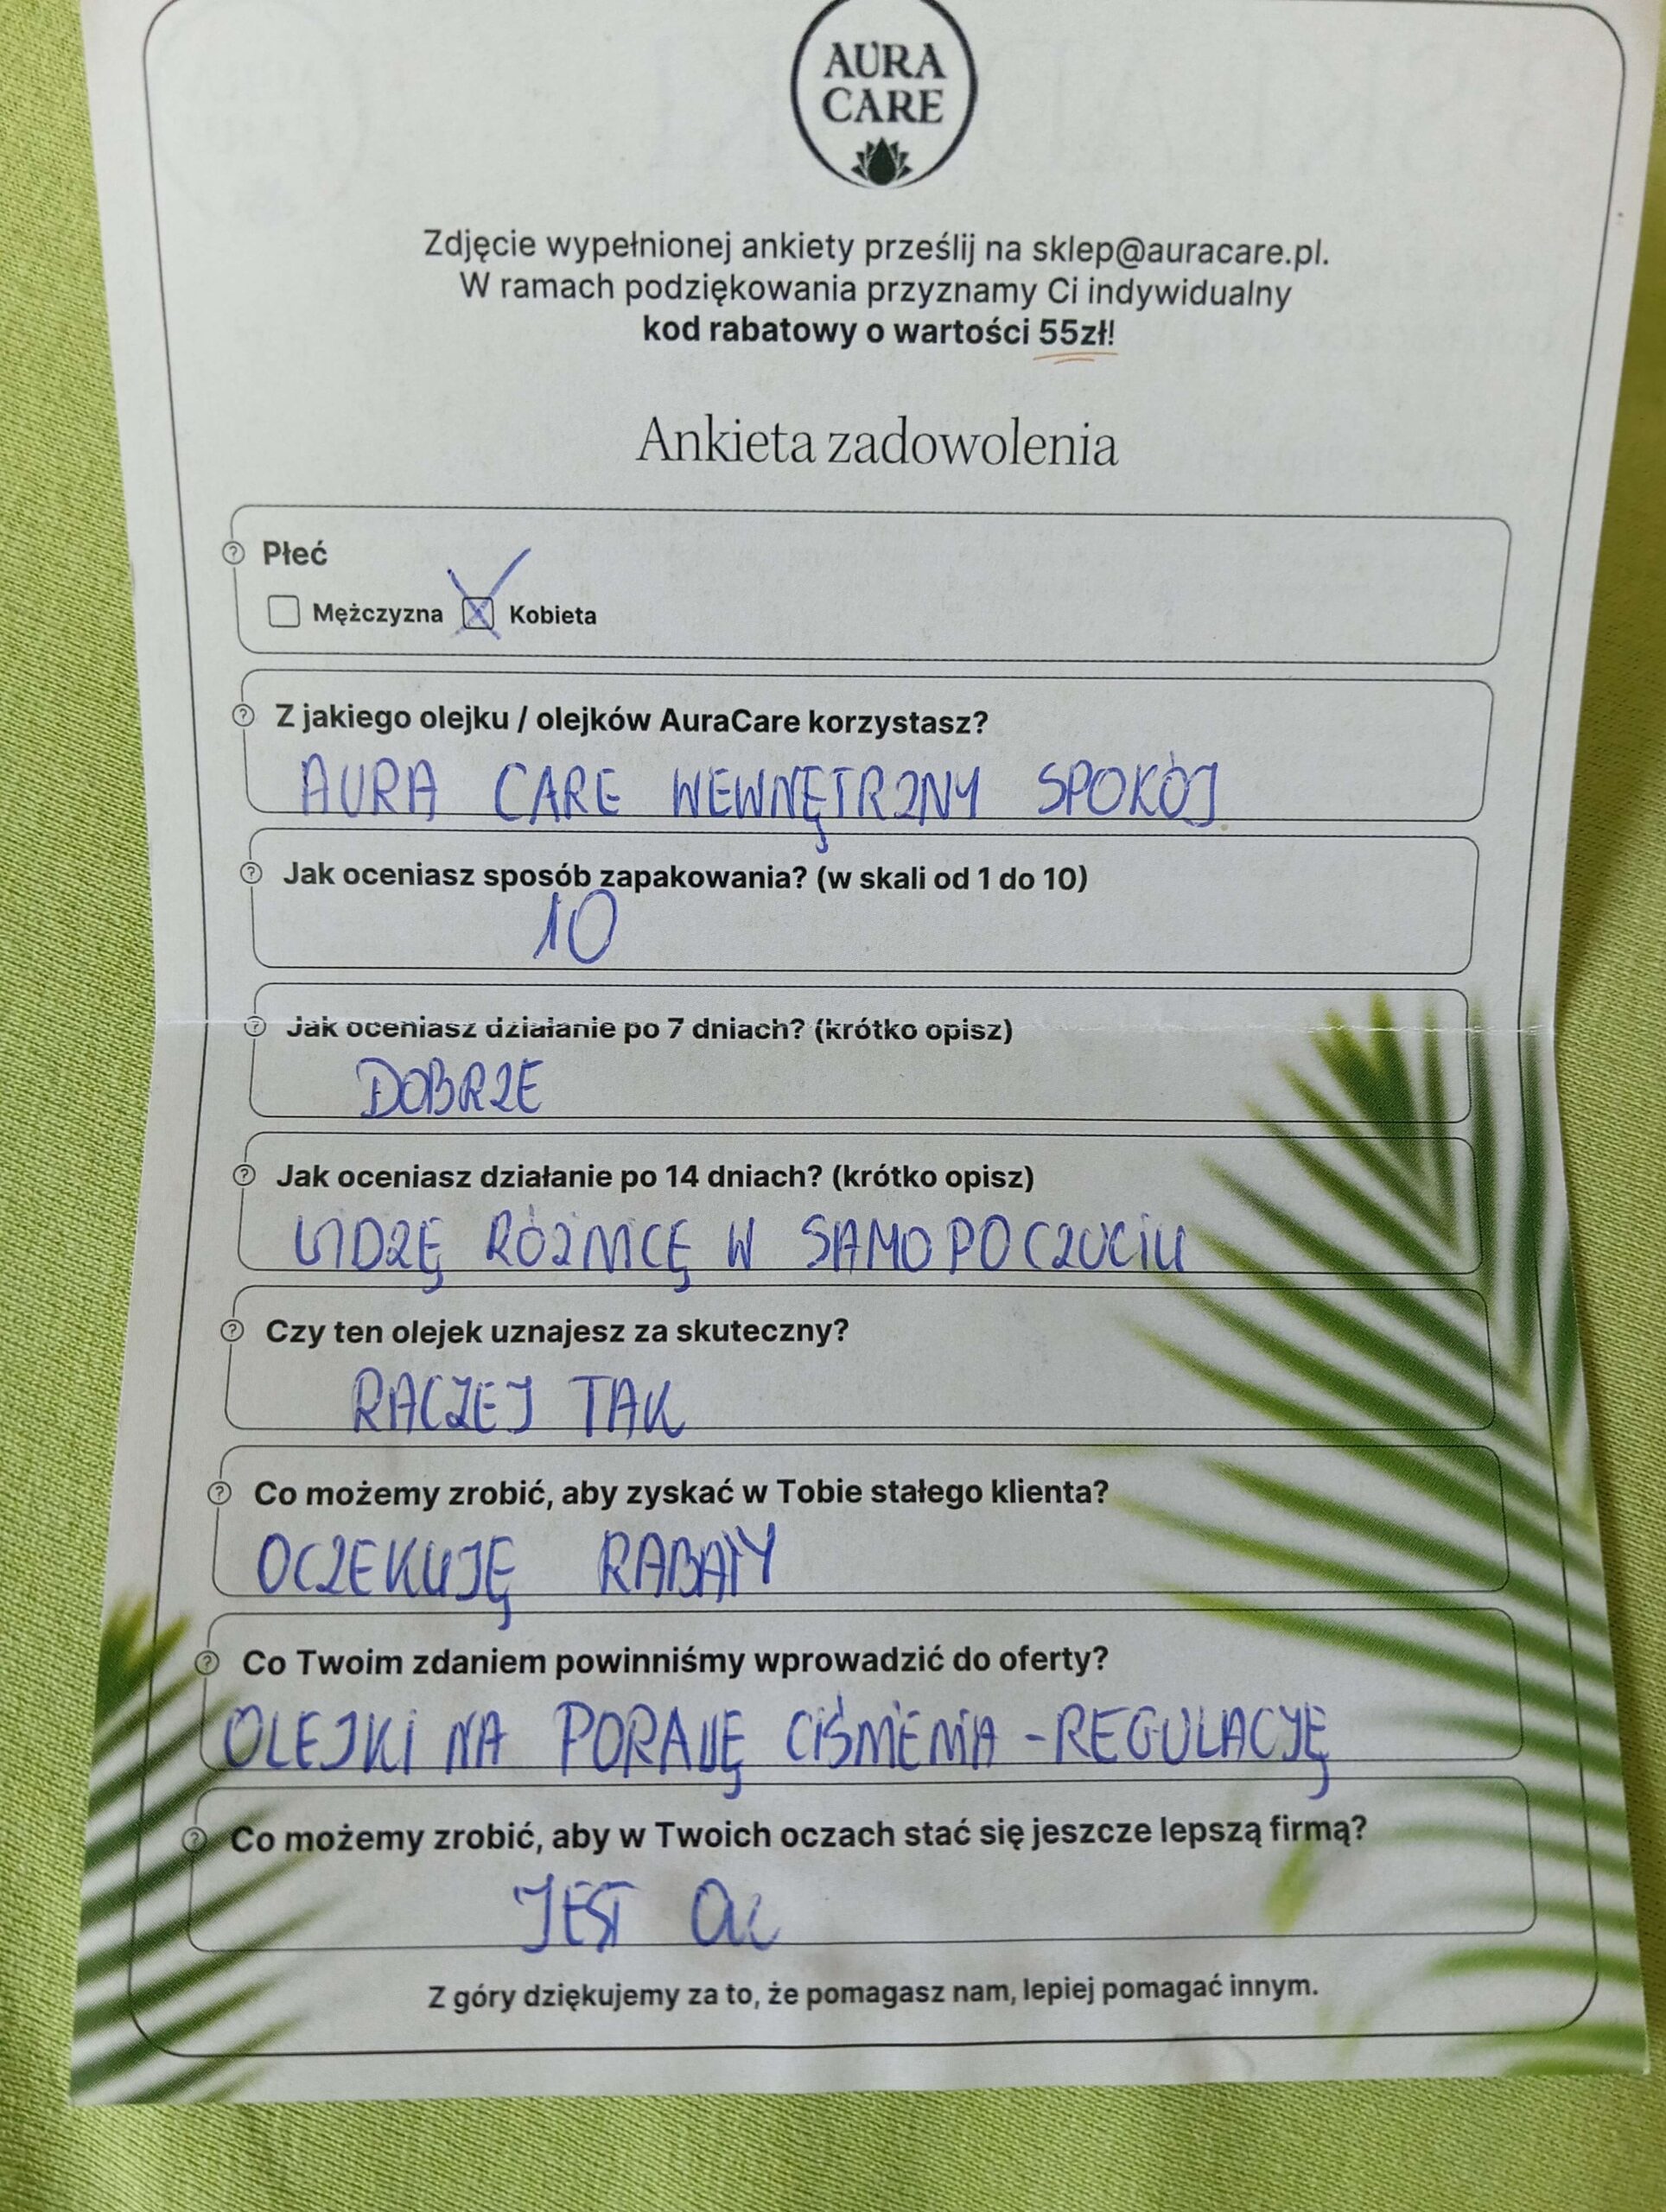 AURA
CARE
Zdjęcie wypełnionej ankiety prześlij na sklep@auracare.pl.
W ramach podziękowania przyznamy Ci indywidualny
kod rabatowy o wartości 55zł!
Ankieta zadowolenia
Płeć
Mężczyzna Kobieta
Z jakiego olejku / olejków AuraCare korzystasz?
AURA CARE WEWNĘTRZNY SPOKÓJ
Jak oceniasz sposób zapakowania? (w skali od 1 do 10)
10
Jak oceniasz działanie po 7 dniach? (krótko opisz)
DOBRZE
Jak oceniasz działanie po 14 dniach? (krótko opisz)
WIDZĘ RÓŻNICĘ W SAMOPOCZUCIU
Czy ten olejek uznajesz za skuteczny?
RACZEJ TAK
Co możemy zrobić, aby zyskać w Tobie stałego klienta?
OCZEKUJĘ RABATY
Co Twoim zdaniem powinniśmy wprowadzić do oferty?
OLEJKI NA CIŚNIENIA - REGULACJĘ
Co możemy zrobić, aby w Twoich oczach stać się jeszcze lepszą firmą?
JEST OK
Z góry dziękujemy za to, że pomagasz nam, lepiej pomagać innym.